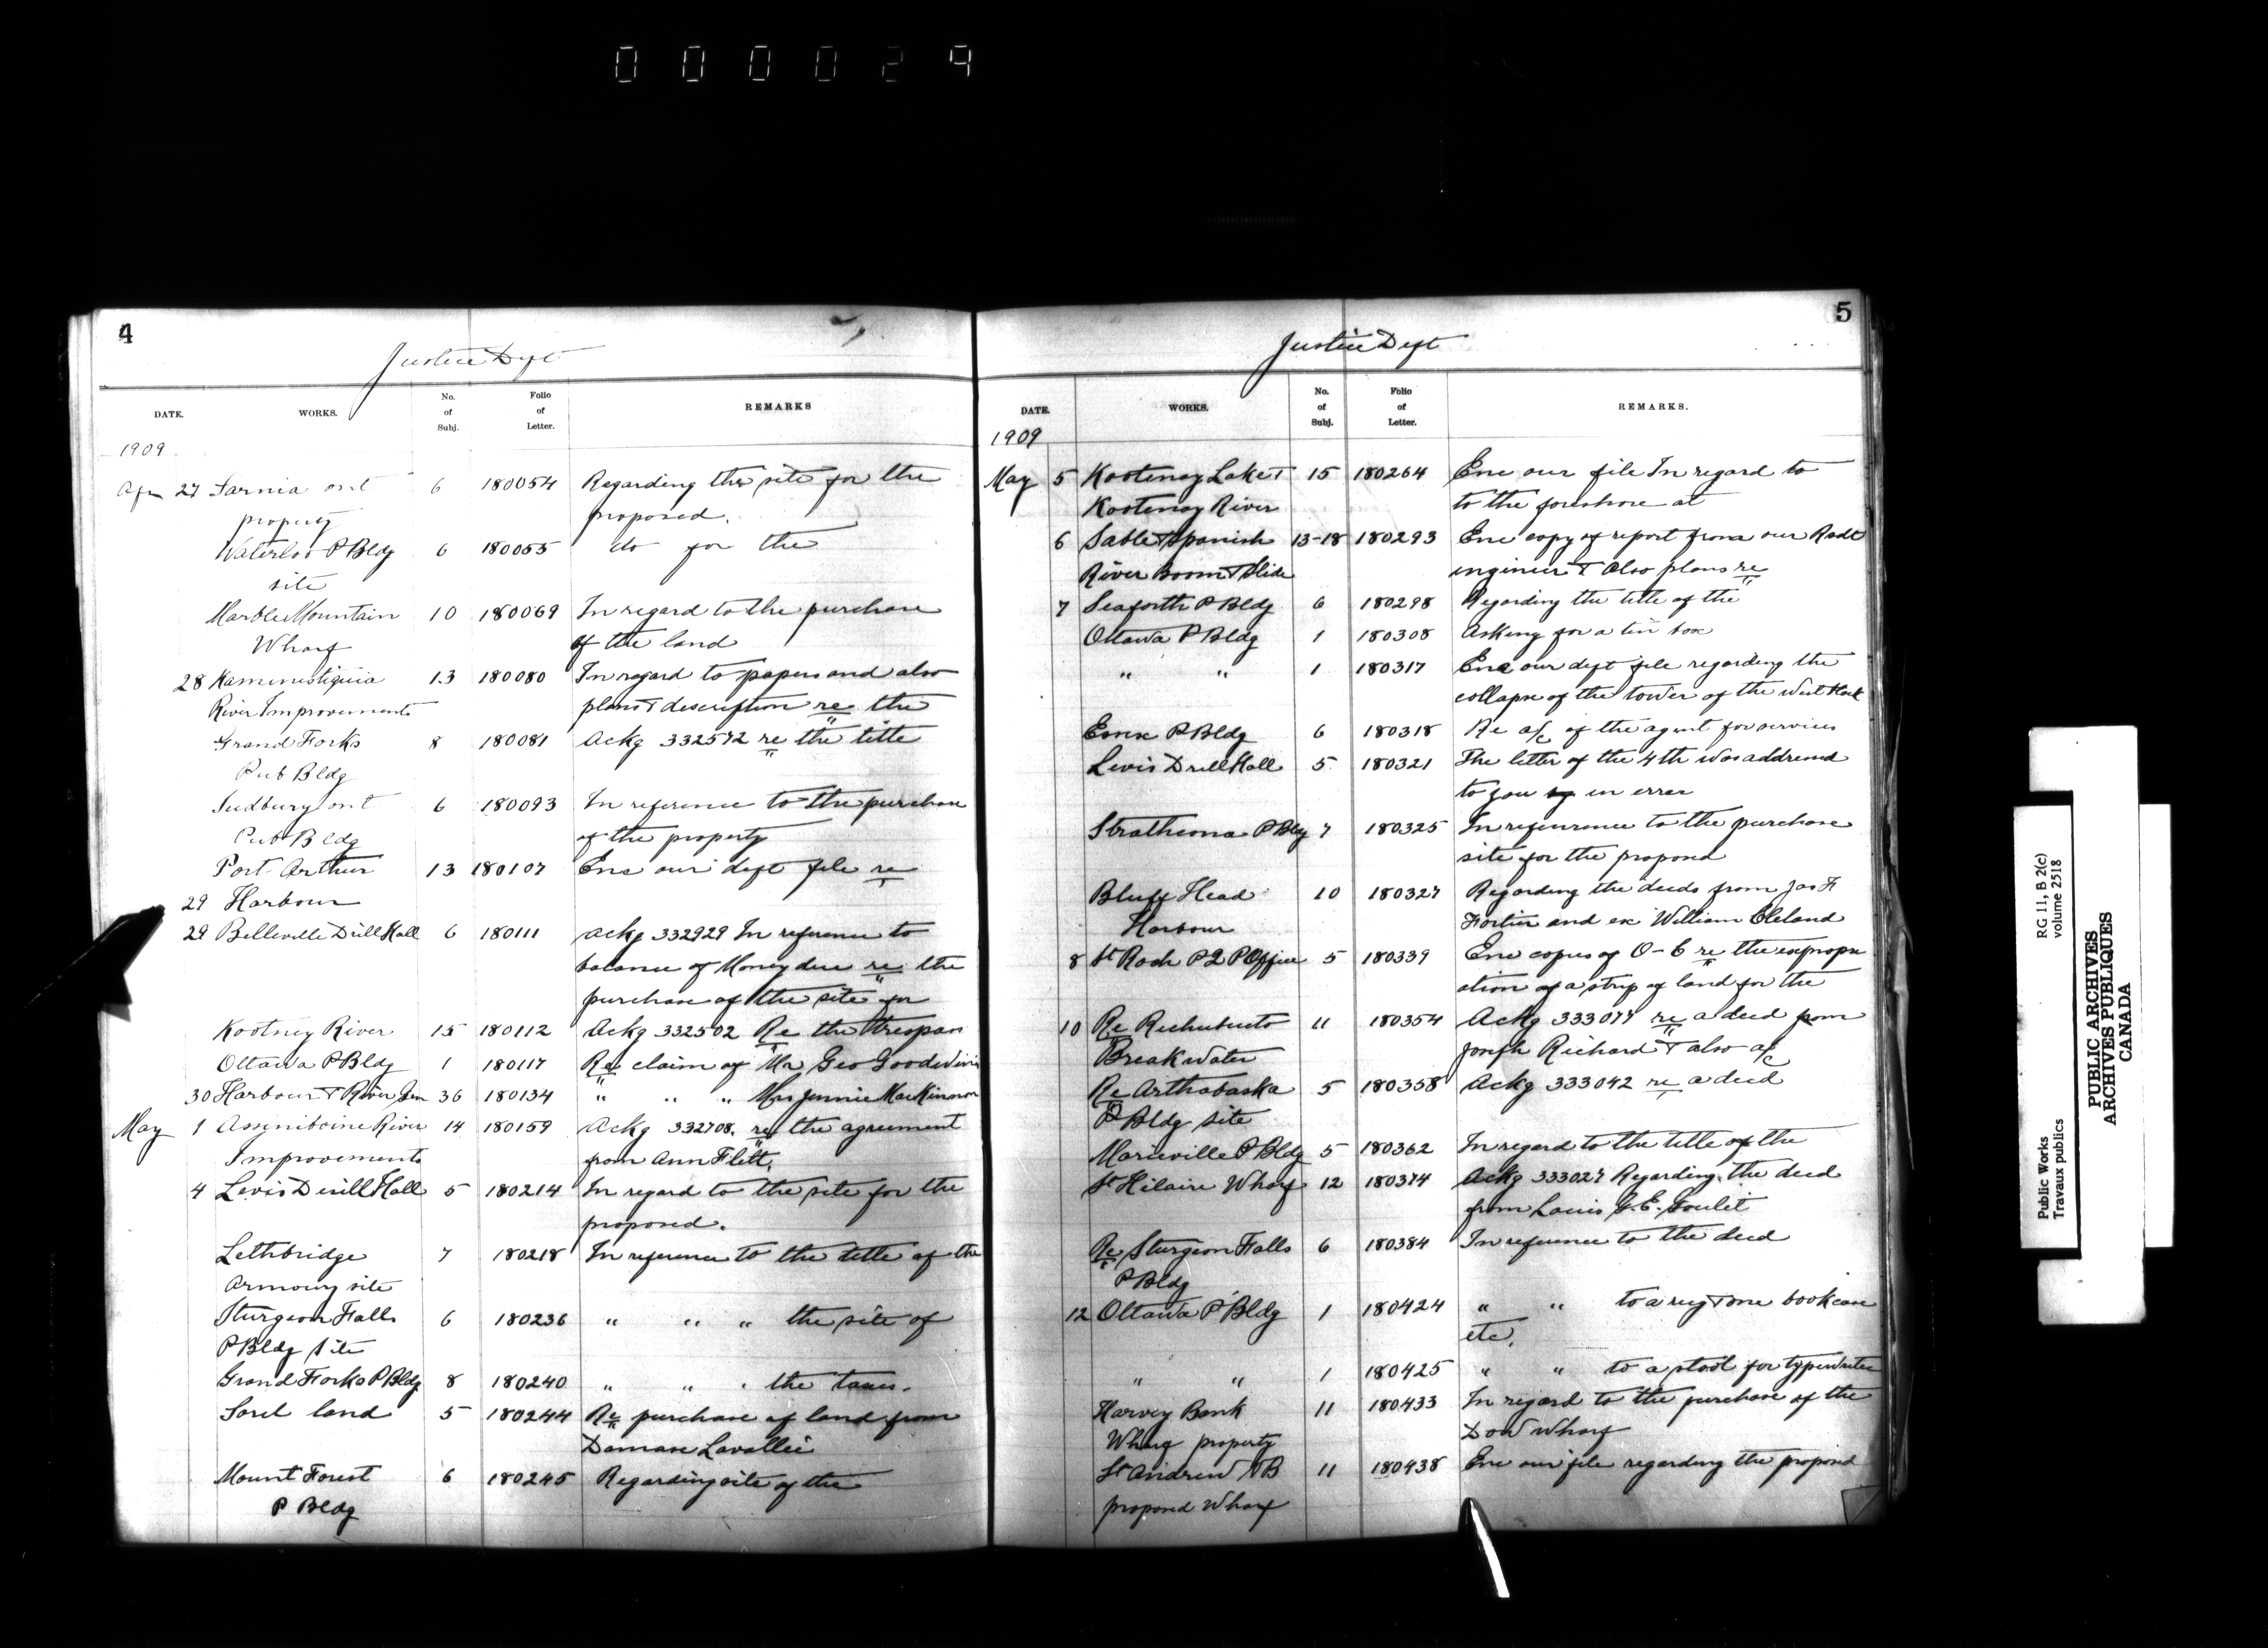 000029
4
Justice Dept
DATE. WORKS. No. of Subj. Folio of Letter. REMARKS
1909
Apr 27 Sarnia ont 6 180054 Regarding the site for the
property proposed.
Waterloo P Bldg 6 180055 do for the
site
Marble Mountain 10 180069 In regard to the purchase
Wharf of the land
28 Kaministiquia 13 180080 In regard to papers and also
River Improvements plans & description re the
Grand Forks 8 180081 Ackg 332572 re the title
Pub Bldg
Sudbury ont 6 180093 In reference to the purchase
Pub Bldg of the property
Port Arthur 13 180107 Enc our dept file re
29 Harbour
29 Belleville Drill Hall 6 180111 Ackg 332929 In reference to
balance of Money due re the
purchase of the site for
Kootney River 15 180112 Ackg 332502 Re the trespass
Ottawa P Bldg 1 180117 Re claim of Mr Geo Goodwin
30 Harbour & River Jen 36 180134 " " " Mrs Jennie MacKinnon
May 1 Assiniboine River 14 180159 Ackg 332708. re the agreement
Improvements from Ann Flett.
4 Levis Drill Hall 5 180214 In regard to the site for the
proposed.
Lethbridge 7 180218 In reference to the title of the
Armoury site
Sturgeon Falls 6 180236 " " " the site of
P Bldg site
Grand Forks P Bldg 8 180240 " " " the taxes.
Sorel land 5 180244 Re purchase of land from
Damase Lavallée
Mount Forest 6 180245 Regarding site of the
P Bldg
5
Justice Dept
DATE. WORKS. No. of Subj. Folio of Letter. REMARKS.
1909
May 5 Kootenay Lake & 15 180264 Enc our file In regard to
Kootenay River to the foreshore at
6 Sable & Spanish 13-18 180293 Enc copy of report from our Resdt
River Boom & Slide engineer & also plans re
7 Seaforth P Bldg 6 180298 Regarding the title of the
Ottawa P Bldg 1 180308 Asking for a tin box
" " 1 180317 Enc our dept file regarding the
collapse of the tower of the West Block
Essex P Bldg 6 180318 Re a/c of the agent for services
Levis Drill Hall 5 180321 The letter of the 4th was addressed
to you in error
Strathcona P Bldg 7 180325 In refeurence to the purchase
site for the proposed
Bluff Head 10 180327 Regarding the deeds from Jas F
Harbour Fortier and ex William Cleland
8 St Roch P Office 5 180339 Enc copies of O-C re the expropri
ation of a strip of land for the
10 Re Richibucto 11 180354 Ackg 333077 re a deed from
Breakwater Joseph Richard & also a/c
Re Arthabaska 5 180358 Ackg 333042 re a deed
P Bldg site
Marieville P Bldg 5 180362 In regard to the title of the
St Hilaire Wharf 12 180374 Ackg 333027 Regarding the deed
from Louis G.E. Goulet
Re Sturgeon Falls 6 180384 In reference to the deed
P Bldg
12 Ottawa P Bldg 1 180424 " " to a rug & one bookcase
etc.
" " 1 180425 " " to a stool for typewriter
Harvey Bank 11 180433 In regard to the purchase of the
Wharf property Dow Wharf
St Andrew NB 11 180438 Enc our file regarding the proposed
proposed Wharf
Public Works
Travaux publics
RG 11, B 2(c)
volume 2518
PUBLIC ARCHIVES
ARCHIVES PUBLIQUES
CANADA